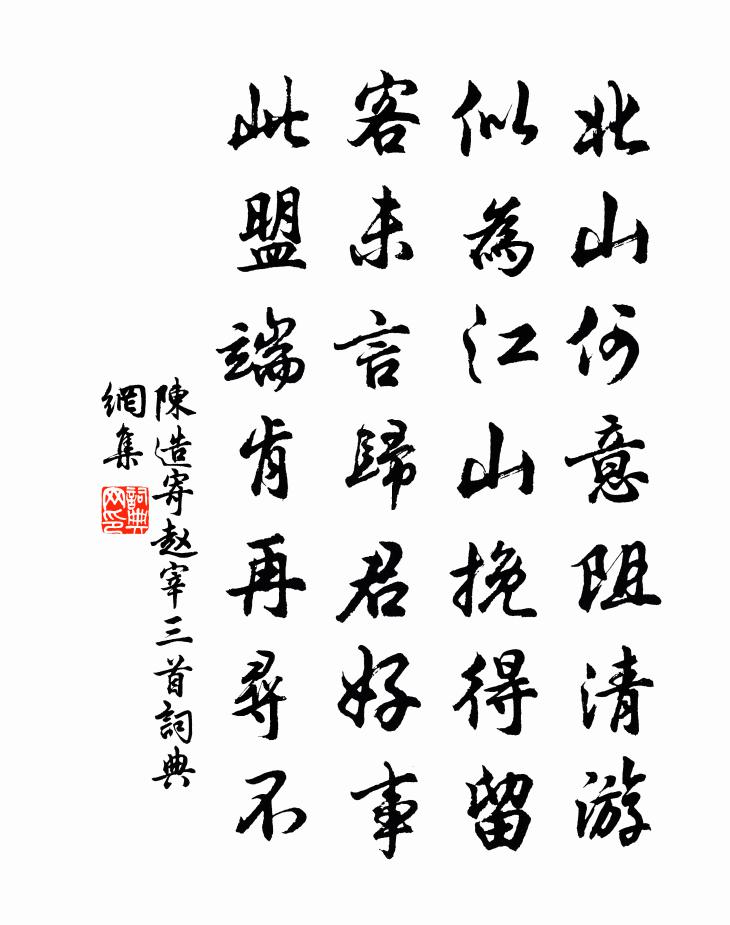 北山何意阻清游
似為江山挽得留
客未言歸君好事
此盟端肯再尋不
陳造寄赵宰三首詞典
網集
詞典网印